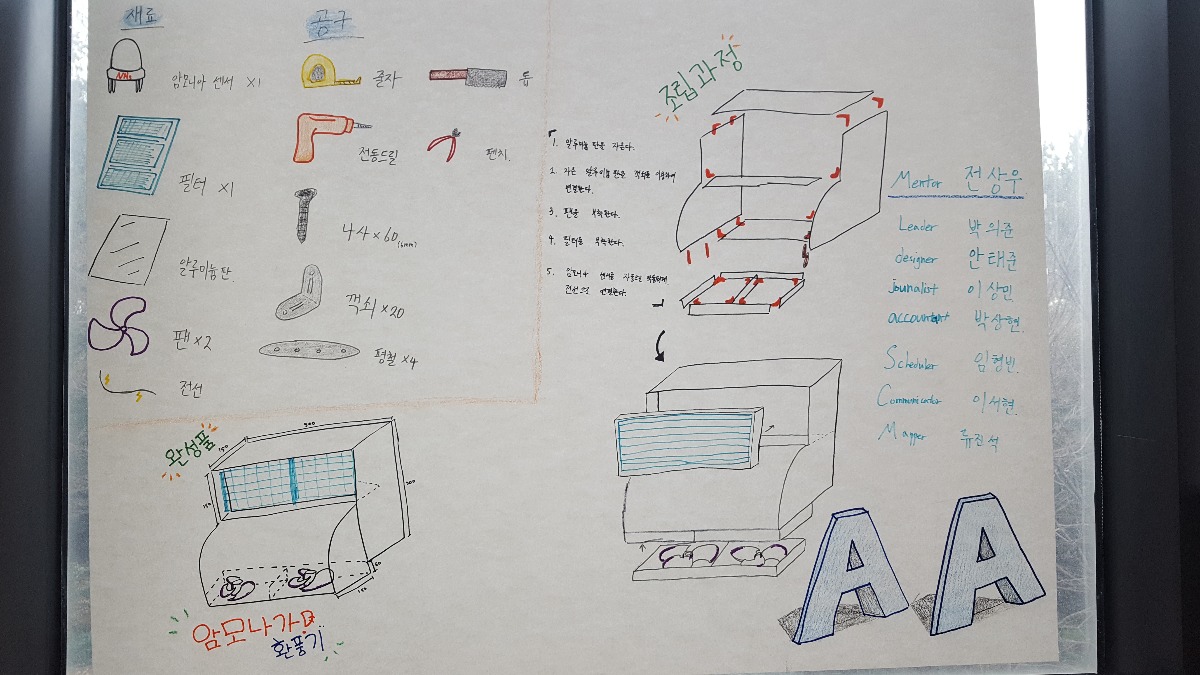 재료
NH₃
암모니아 센서 x1
필터 x1
알루미늄 판.
팬 x2
전선
공구
줄자
톱
전동드릴
펜치.
나사 x 60
(6mm)
꺽쇠 x20
평철 x4
조립과정
1. 알루미늄 판을 자른다.
2. 자른 알루미늄 판을 꺽쇠를 이용하여
연결한다.
3. 팬을 부착한다.
4. 필터를 부착한다.
5. 암모니아 센서를
전선으로 연결한다.
Mentor 전상우
Leader 박의준
designer 안태준
jounalist 이상민
accountant 박상현.
Scheduler 임형빈.
Communicator 이서현.
Mapper 류진석
완성품
암모나가
환풍기
AA